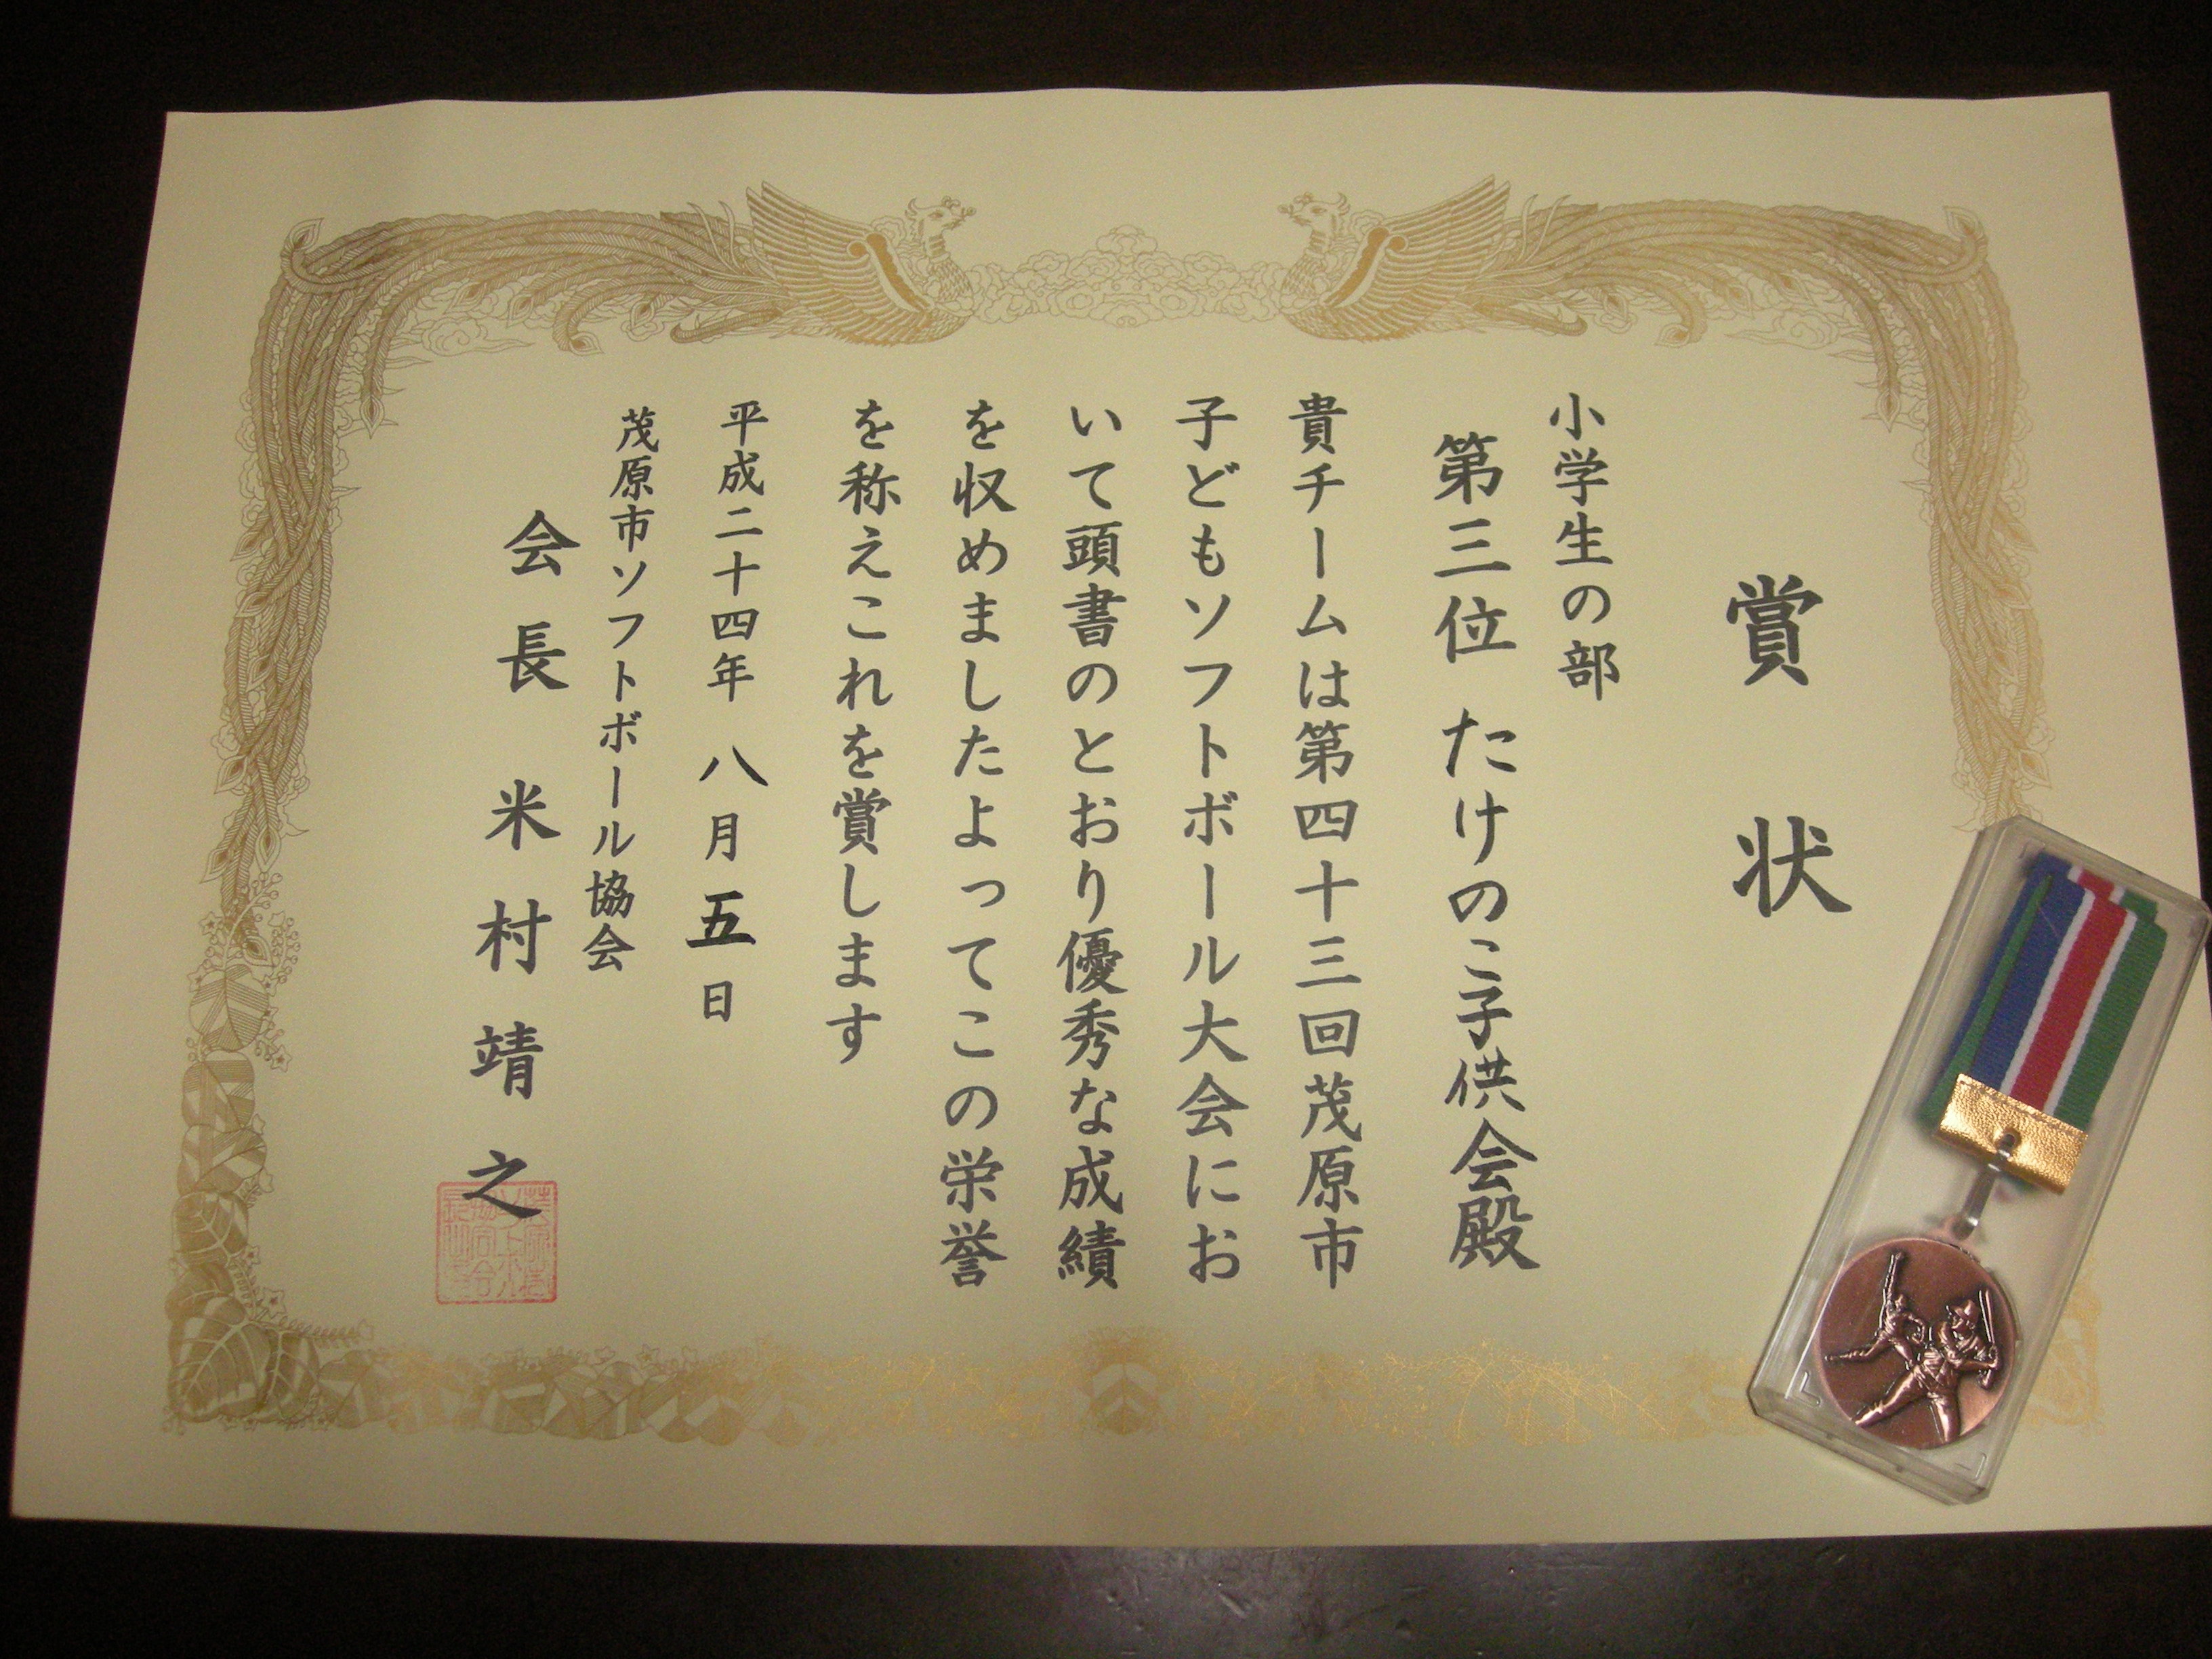 賞状
小学生の部
第三位 たけのこ子供会殿
貴チームは第四十三回茂原市
子どもソフトボール大会にお
いて頭書のとおり優秀な成績
を収めましたよってこの栄誉
を称えこれを賞します
平成二十四年 八月五日
茂原市ソフトボール協会
会長 米村靖之